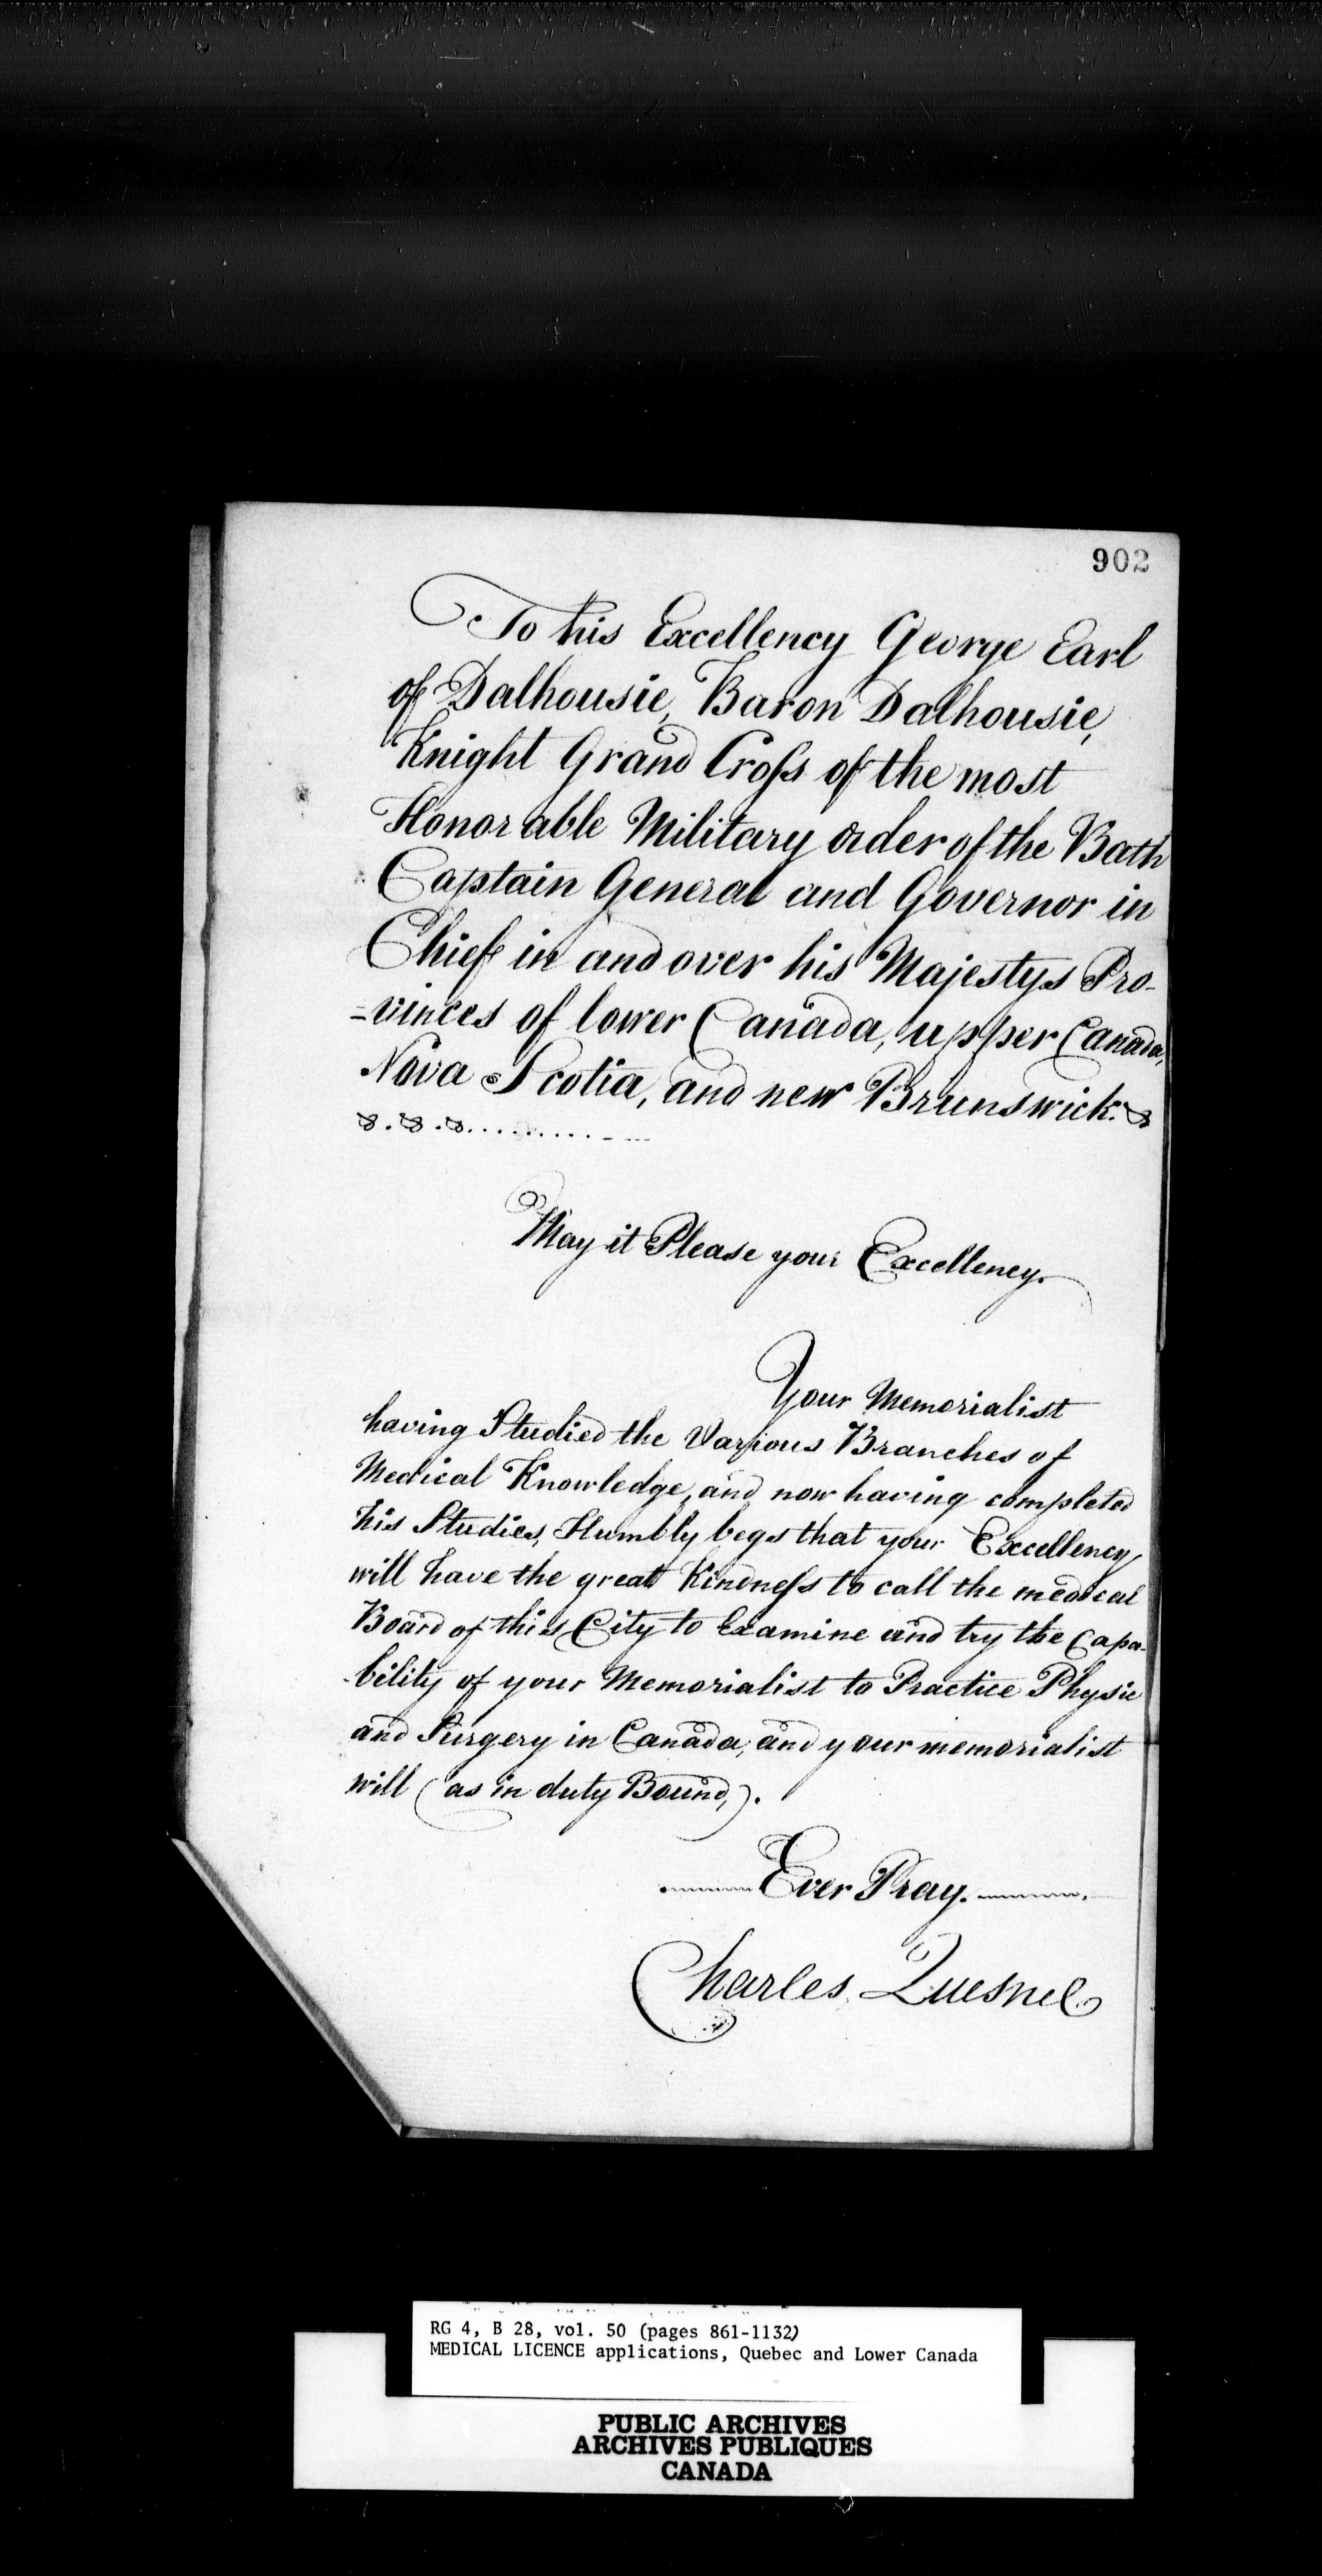 902
To his Excellency George Earl
of Dalhousie, Baron Dalhousie,
Knight Grand Cross of the most
Honorable Military order of the Bath
Captain General and Governor in
Chief in and over his Majestys Pro-
=vinces of lower Canada, upper Canada,
Nova Scotia, and new Brunswick. &
&. &. &..........
May it Please your Excellency.
Your Memorialist
having Studied the Various Branches of
Medical Knowledge, and now having completed
his Studies, Humbly begs that your Excellency
will have the great Kindness to call the medical
Board of this City to Examine and try the Capa-
-bility of your Memorialist to Practice Physic
and Surgery in Canada, and your memorialist
will (as in duty Bound,).
Ever Pray.
Charles Quesnel
RG 4, B 28, vol. 50 (pages 861-1132)
MEDICAL LICENCE applications, Quebec and Lower Canada
PUBLIC ARCHIVES
ARCHIVES PUBLIQUES
CANADA